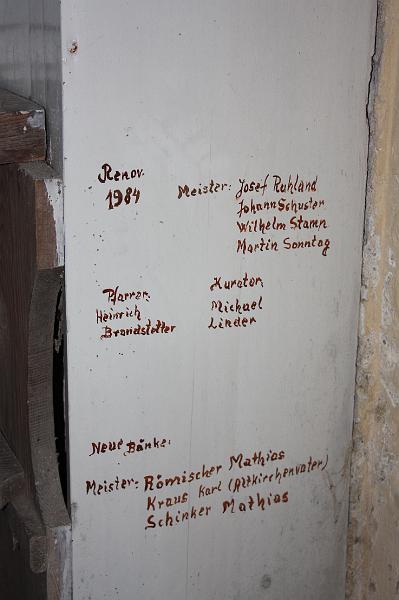 Renov.
1984
Meister: Josef Ruhland
Johann Schuster
Wilhelm Stamp
Martin Sonntag
Pfarrer:
Heinrich
Brandstetter
Kurator:
Michael
Linder
Neue Bänke:
Meister: Römischer Mathias
Kraus Karl (Altkirchenvater)
Schinker Mathias